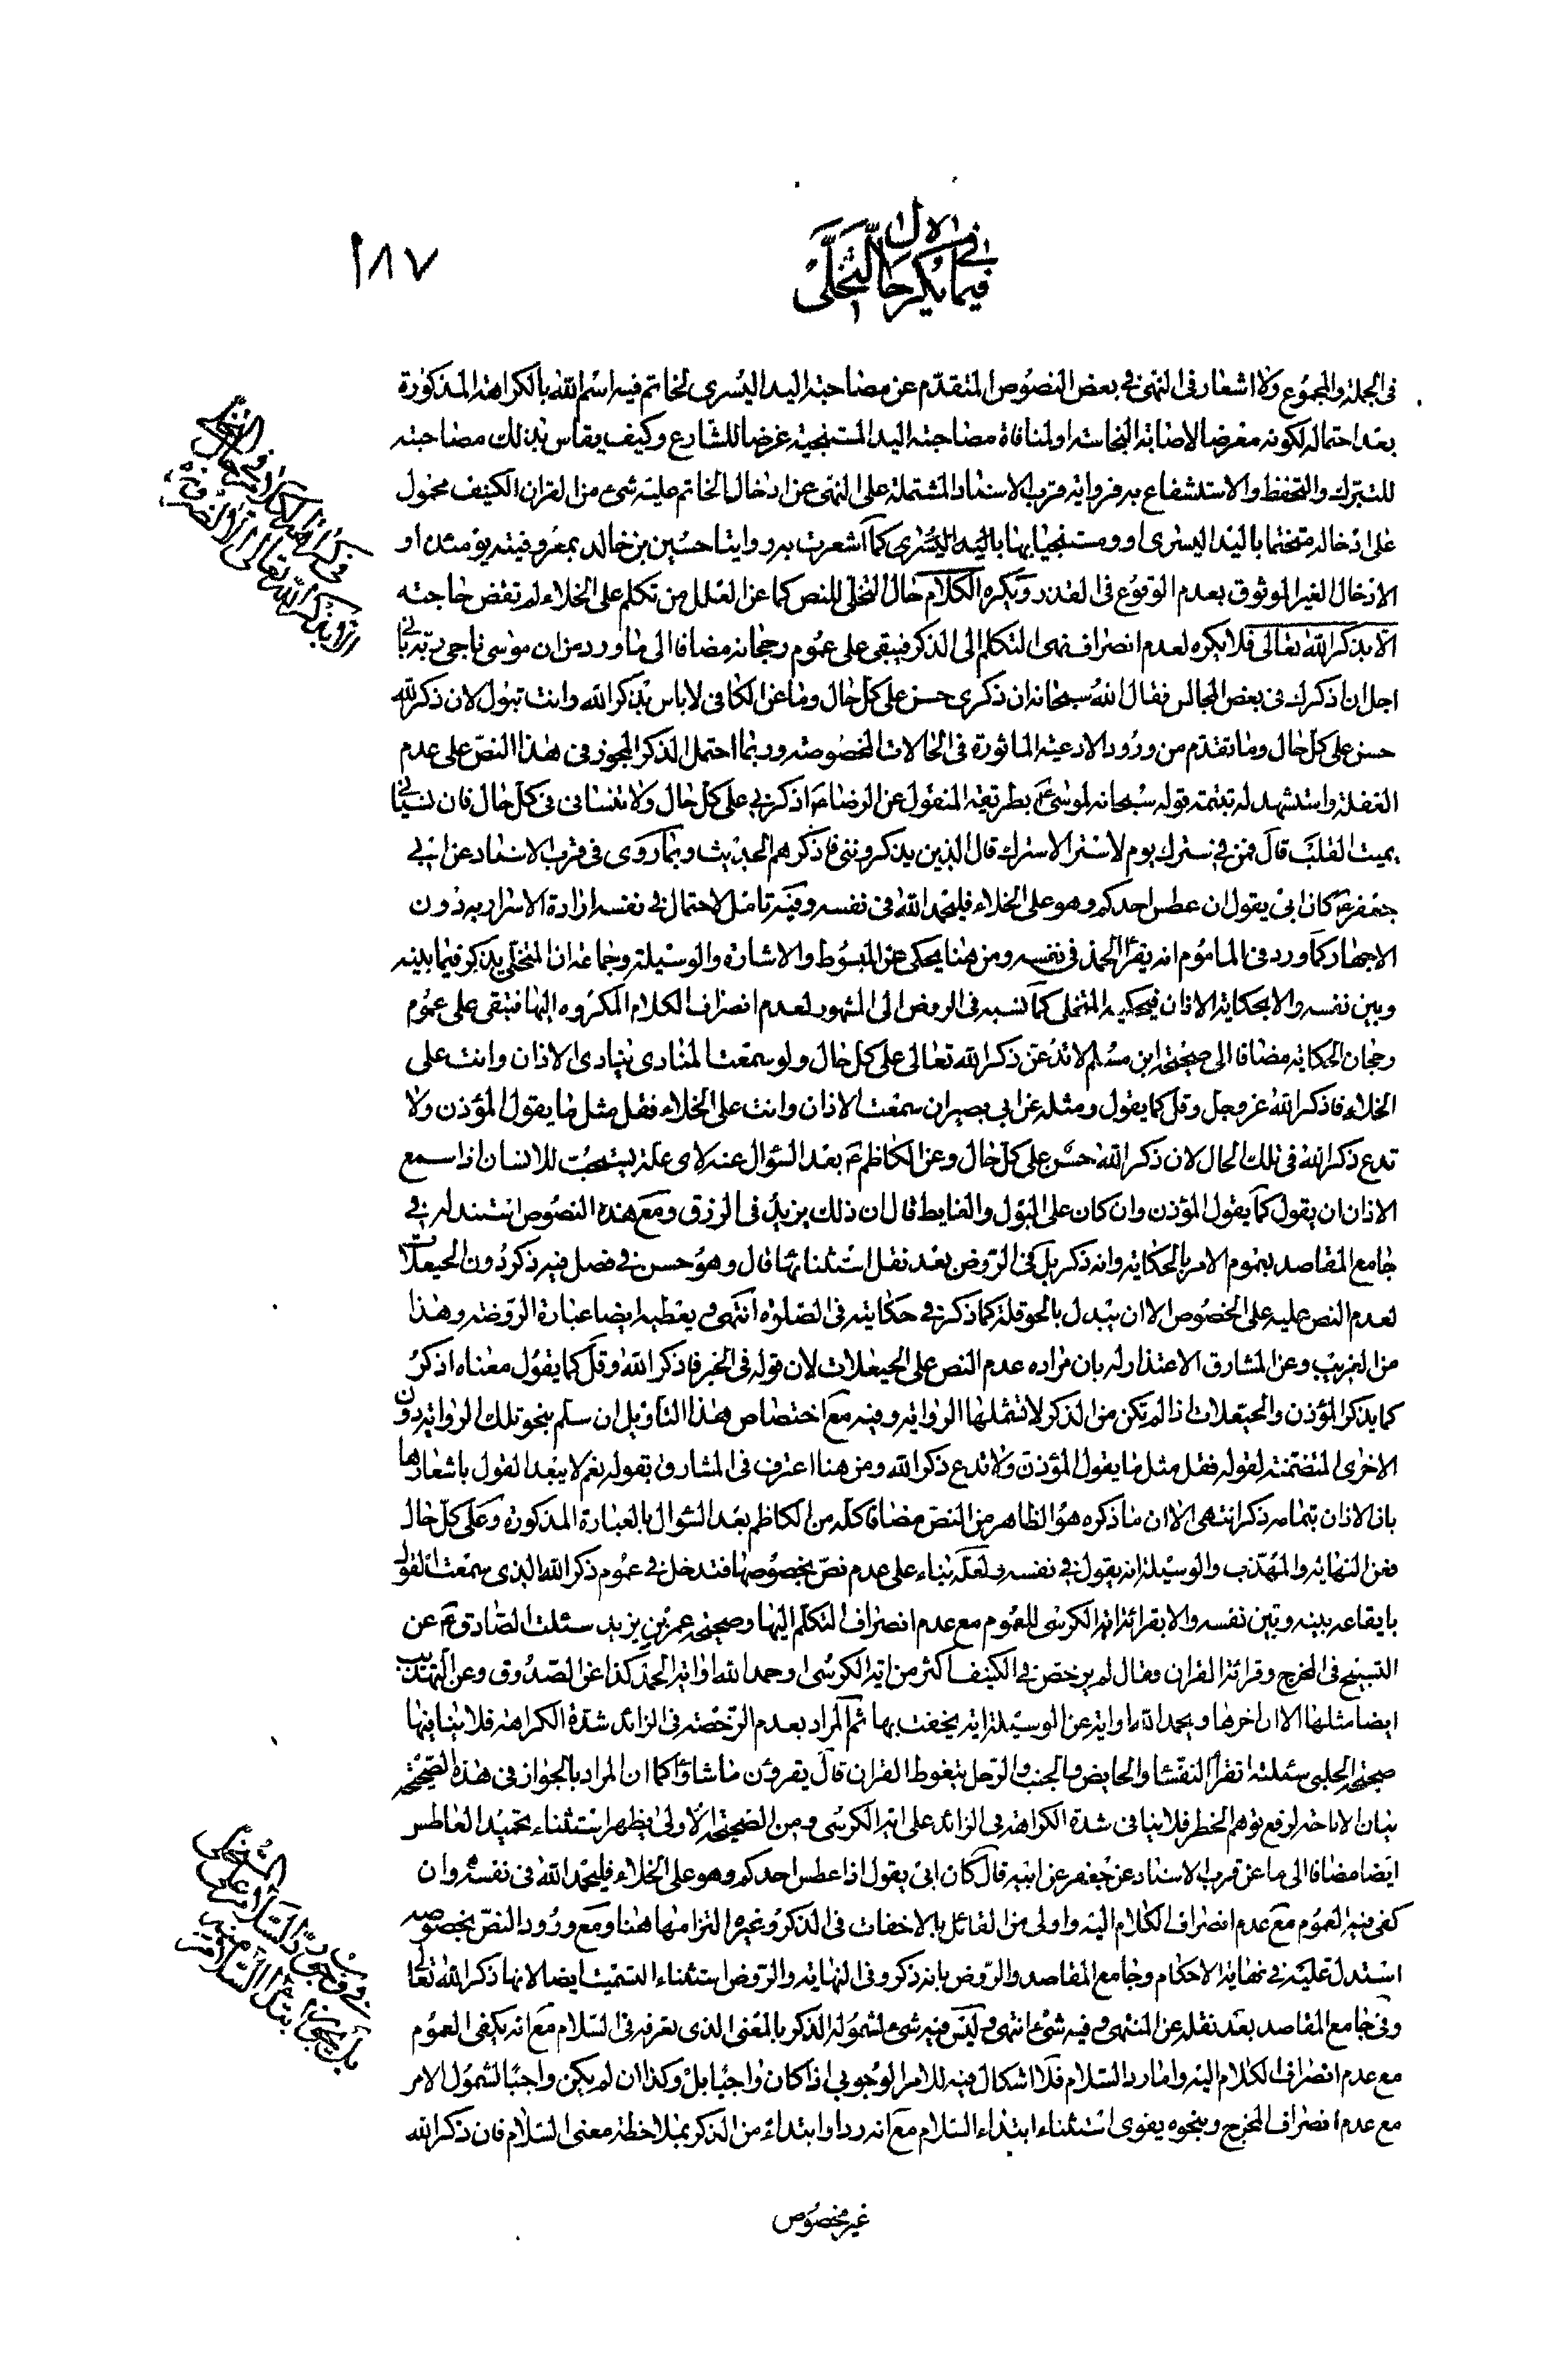 ١٨٧
فيما يكره حال التخلي
فى الجملة والمجموع ولا اشعار فى النهى فى بعض النصوص المتقدّم عن مصاحبته اليد اليسرى لخاتم فيه اسم الله بالكراهة المذكورة
بعد احتماله لكونه معرضا لاصابة النجاسة او لمنافاة مصاحبته اليد المستنجية غرضا للشارع وكيف يقاس بذلك مصاحبته
للتبرك والتحفظ والاستشفاع به فرواية قرب الاسناد المشتملة على النهى عن ادخال الخاتم عليه شئ من القران الكنيف محمول
على ادخاله متختما باليد اليسرى او ومستنجيا بها باليد اليسرى كما اشعرت به روايتا حسين بن خالد بمعروفيته يومئذ او
الادخال لغير الموثوق بعدم الوقوع فى القذر ويكره الكلام حال التخلى للنص كما عن العلل من تكلم على الخلاء لم تقض حاجته
الا بذكر الله تعالى فلا يكره لعدم انصراف نهى التكلم الى الذكر فيبقى على عموم رجحانه مضافا الى ما ورد من ان موسى ناجى ربّه بانى
اجل ان اذكرك فى بعض المجالس فقال الله سبحانه ان ذكرى حسن على كل حال وما عن الكافى لا باس بذكر الله وانت تبول لان ذكر الله
حسن على كل حال وما تقدم من ورود الادعية الماثورة فى الحالات المخصوصة وربما احتمل الذكر المجوز فى هذا النص على عدم
الغفلة واستشهد له بتتمة قوله سبحانه لموسى ع بطريقه المنقول عن الرضا ع اذكرنى على كل حال ولا تنسانى فى كل حال فان نسيانى
يميت القلب قال فمن فى سترك يوم لا ستر الا سترك قال الذين يذكروننى فاذكرهم الحديث وبما روى فى قرب الاسناد عن ابى
جعفر ع كان ابى يقول ان عطس احدكم وهو على الخلاء فليحمد الله فى نفسه وفيه تامل لاحتمال فى نفسه ارادة الاسرار به دون
الاجهار كما ورد فى الماموم انه يقرأ الحمد فى نفسه ومن هنا يحكى عن المبسوط والاشارة والوسيلة وجماعة ان المتخلى يذكر فيما بينه
وبين نفسه والا بحكاية الاذان فيحكيه المتخلى كما نسبه فى الروض الى المشهور لعدم انصراف الكلام المكروه اليها فتبقى على عموم
رجحان الحكاية مضافا الى صحيحة ابن مسلم لا تدعن ذكر الله تعالى على كل حال ولو سمعت المنادى ينادى الاذان وانت على
الخلاء فاذكر الله عز وجل وقل كما يقول ومثله عن ابى بصير ان سمعت الاذان وانت على الخلاء فقل مثل ما يقول المؤذن ولا
تدع ذكر الله فى تلك الحال لان ذكر الله حسن على كل حال وعن الكاظم ع بعد السؤال عنه لاى علة يستحب للانسان اذا سمع
الاذان ان يقول كما يقول المؤذن وان كان على البول والغايط قال ان ذلك يزيد فى الرزق ومع هذه النصوص استند له فى
جامع المقاصد بعموم الامر بالحكاية وانه ذكر بل فى الروض بعد نقل استثنائها قال وهو حسن فى فصل فيه ذكر دون الحيعلات
لعدم النص عليه على الخصوص الا ان يبدل بالحوقلة كما ذكر فى حكايته فى الصلوة انتهى ويعطيه ايضا عبارة الروضة وهذا
من الغريب وعن المشارق الاعتذار له بان مراده عدم النص على الحيعلات لان قوله فى الخبر فاذكر الله وقل كما يقول معناه اذكر
كما يذكر المؤذن والحيعلات اذا لم تكن من الذكر لا تشملها الرواية وفيه مع اختصاص هذا التأويل ان سلم بنحو تلك الرواية دون
الاخرى المتضمنة لقوله فقل مثل ما يقول المؤذن ولا تدع ذكر الله ومن هنا اعترف فى المشارق بقوله نعم لا يبعد القول باشعارها
بان الاذان بتمامه ذكر انتهى الا ان ما ذكره هو الظاهر من النص مضافا كله من الكاظم بعد السؤال بالعبارة المذكورة وعلى كل حال
فعن النهاية والمهذب والوسيلة انه يقول فى نفسه ولعله بناء على عدم نص بخصوصها فتدخل فى عموم ذكر الله الذى سمعت القول
بايقاعه بينه وبين نفسه والا بقرائة اية الكرسى للعموم مع عدم انصراف التكلم اليها وصحيحة عمر بن يزيد سئلت الصادق ع عن
التسبيح فى المخرج وقرائة القران وقال لم يرخص فى الكنيف اكثر من اية الكرسى وحمد الله او اية الحمد كذا عن الصدوق وعن التهذيب
ايضا مثلها الا ان اخرها ويحمد الله او اية عن الوسيلة انه يخفت بها ثم المراد بعدم الرخصة فى الزائد شدة الكراهة فلا ينافيها
صحيحة الحلبى سئلته اتقرأ النفساء والحايض والجنب والرجل يتغوط القران قال يقرؤن ما شاؤا كما ان المراد بالجواز فى هذه الصحيحة
بيان الاباحة لرفع توهم الحظر فلا ينافى شدة الكراهة فى الزائد على اية الكرسى ومن الصحيحة الاولى يظهر استثناء تحميد العاطس
ايضا مضافا الى ما عن قرب الاسناد عن جعفر عن ابيه قال كان ابى يقول اذا عطس احدكم وهو على الخلاء فليحمد الله فى نفسه وان
كفى فيه العموم مع عدم انصراف الكلام اليه واولى من القائل بالاخفات فى الذكر وغيره التزامها هنا ومع ورود النص بخصوصه
استدل عليه فى نهاية الاحكام وجامع المقاصد والروض بانه ذكر وفى النهاية والروض استثناء التسميت ايضا لانها ذكر الله تعالى
وفى جامع المقاصد بعد نقله عن المنتهى وفيه شئ انتهى وليس فيه شئ لشموله الذكر بالمعنى الذى تعرفه فى السلام مع انه يكفى العموم
مع عدم انصراف الكلام اليه واما رد السلام فلا اشكال فيه للامر الوجوبى اذا كان واجبا بل وكذا ان لم يكن واجبا لشمول الامر
مع عدم انصراف المخرج وبنحوه يقوى استثناء ابتداء السلام مع انه ردا وابتداء من الذكر بملاحظة معنى السلام فان ذكر الله
غير مخصوص